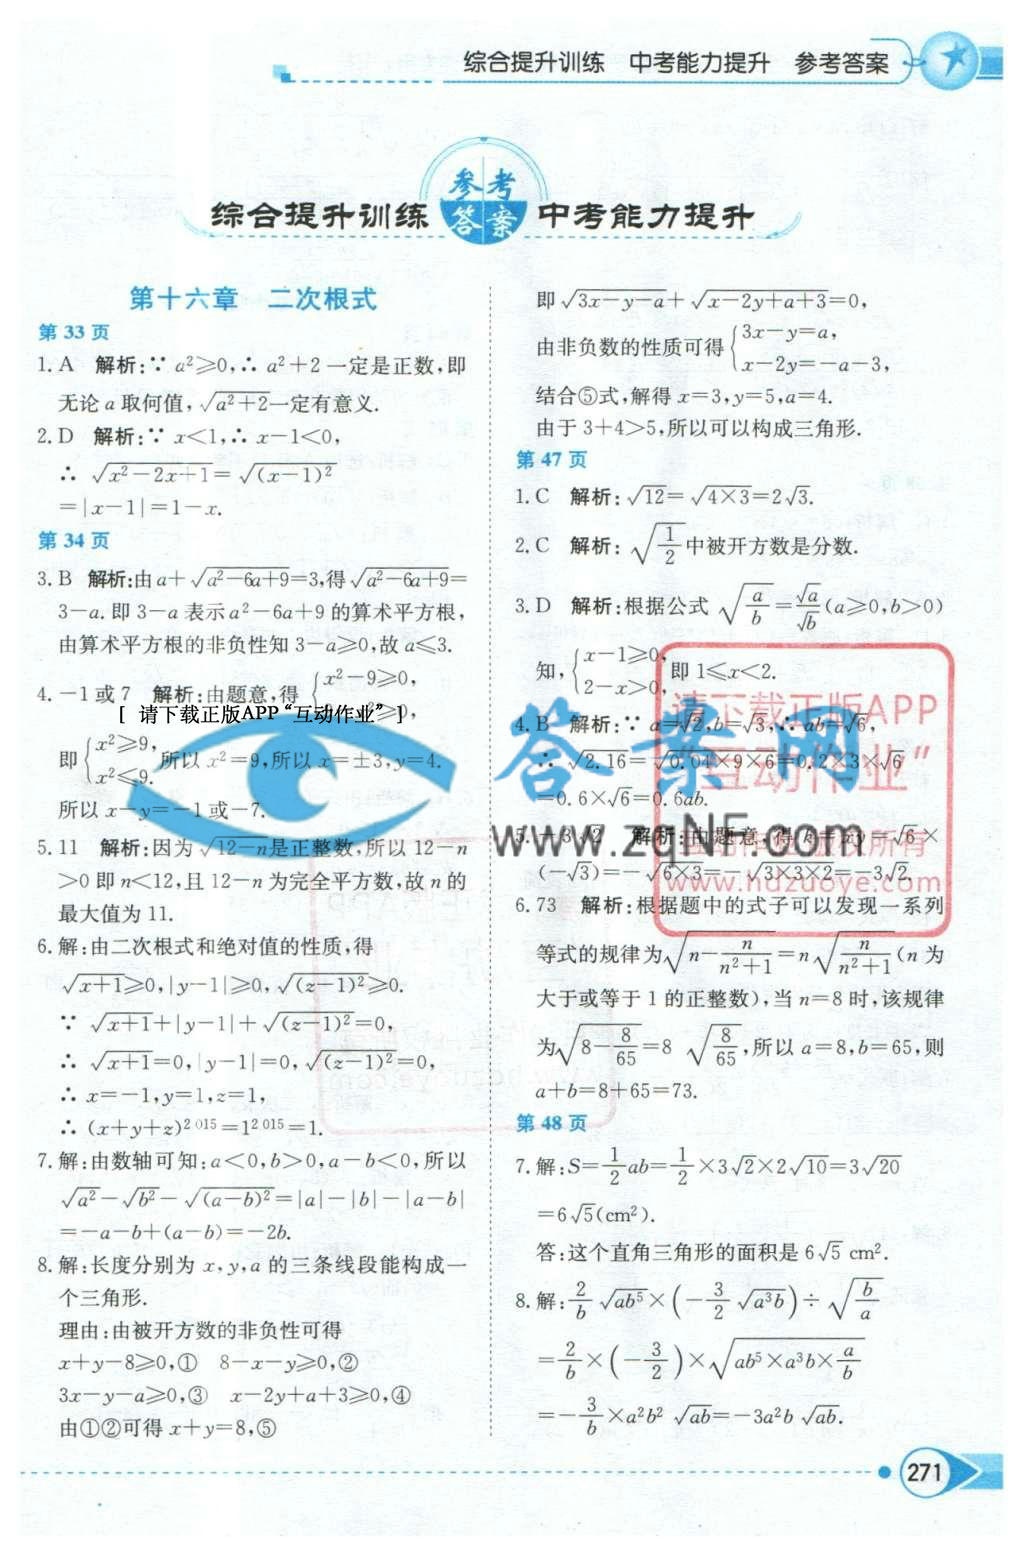 综合提升训练 中考能力提升 参考答案
综合提升训练 参考答案 中考能力提升
第十六章 二次根式
第 33 页
1. A 解析:∵ a²≥0,∴ a²+2 一定是正数,即
无论 a 取何值,√(a²+2)一定有意义.
2. D 解析:∵ x<1,∴ x-1<0,
∴ √(x²-2x+1)=√((x-1)²)
=|x-1|=1-x.
第 34 页
3. B 解析:由 a+√(a²-6a+9)=3,得√(a²-6a+9)=
3-a. 即 3-a 表示 a²-6a+9 的算术平方根,
由算术平方根的非负性知 3-a≥0,故 a≤3.
4. -1 或 7 解析:由题意,得{x²-9≥0,
[ 请下载正版APP“互动作业” ]
即{x²≥9, x²≤9. 所以 x²=9,所以 x=±3,y=4.
所以 x-y=-1 或-7.
5. 11 解析:因为√(12-n)是正整数,所以 12-n
>0 即 n<12,且 12-n 为完全平方数,故 n 的
最大值为 11.
6. 解:由二次根式和绝对值的性质,得
√(x+1)≥0,|y-1|≥0,√((z-1)²)≥0.
∵ √(x+1)+|y-1|+√((z-1)²)=0,
∴ √(x+1)=0,|y-1|=0,√((z-1)²)=0,
∴ x=-1,y=1,z=1,
∴ (x+y+z)²⁰¹⁵=1²⁰¹⁵=1.
7. 解:由数轴可知:a<0,b>0,a-b<0,所以
√a²-√b²-√((a-b)²)=|a|-|b|-|a-b|
=-a-b+(a-b)=-2b.
8. 解:长度分别为 x,y,a 的三条线段能构成一
个三角形.
理由:由被开方数的非负性可得
x+y-8≥0,① 8-x-y≥0,②
3x-y-a≥0,③ x-2y+a+3≥0,④
由①②可得 x+y=8,⑤
即√(3x-y-a)+√(x-2y+a+3)=0,
由非负数的性质可得{3x-y=a, x-2y=-a-3,
结合⑤式,解得 x=3,y=5,a=4.
由于 3+4>5,所以可以构成三角形.
第 47 页
1. C 解析:√12=√(4×3)=2√3.
2. C 解析:√(1/2)中被开方数是分数.
3. D 解析:根据公式√(a/b)=√a/√b(a≥0,b>0)
知,{x-1≥0, 2-x>0, 即 1≤x<2.
4. B 解析:∵ a=√2,b=√3,∴ ab=√6,
∴ √2.16=√(0.04×9×6)=0.2×3×√6
=0.6×√6=0.6ab.
5. -3√2 解析:由题意,得
=√6×
(-√3)=-√(6×3)=-√(3×3×2)=-3√2.
6. 73 解析:根据题中的式子可以发现一系列
等式的规律为√(n-n/(n²+1))=n√(n/(n²+1))(n 为
大于或等于 1 的正整数),当 n=8 时,该规律
为√(8-8/65)=8√(8/65),所以 a=8,b=65,则
a+b=8+65=73.
第 48 页
7. 解:S=1/2ab=1/2×3√2×2√10=3√20
=6√5(cm²).
答:这个直角三角形的面积是 6√5 cm².
8. 解:2/b √(ab⁵)×(-3/2 √(a³b))÷√(b/a)
=2/b×(-3/2)×√(ab⁵×a³b×a/b)
=-3/b×a²b²√(ab)=-3a²b√(ab).
请下载正版APP
“互动作业”
www.hdzuoye.com
答案网
www.zqNF.com
271